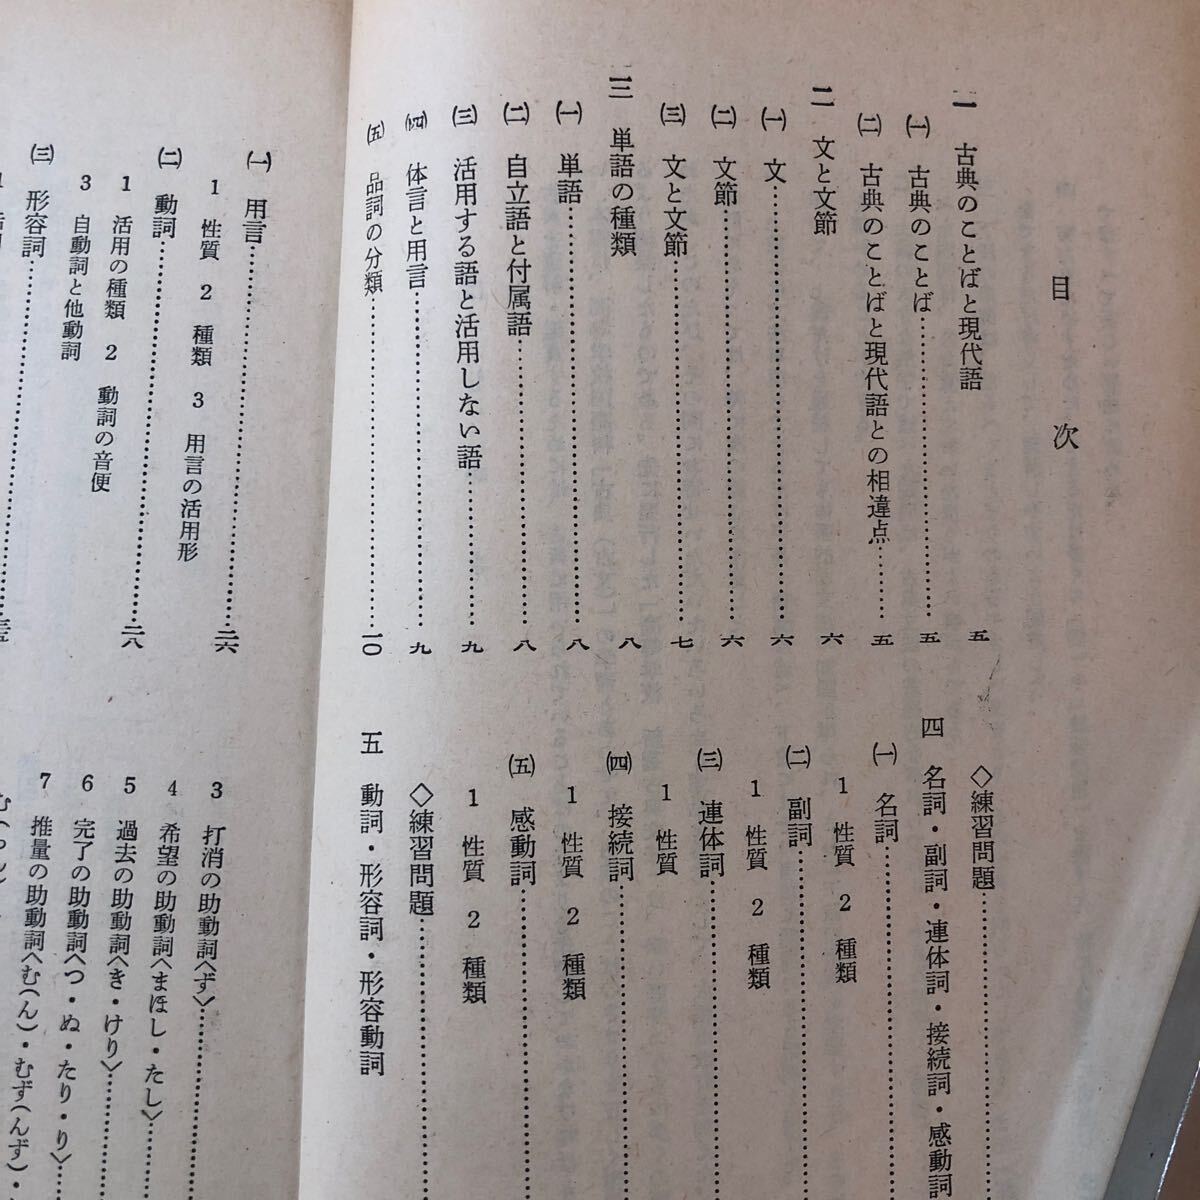 目次
一 古典のことばと現代語 五
㈠ 古典のことば 五
㈡ 古典のことばと現代語との相違点 五
二 文と文節 六
㈠ 文 六
㈡ 文節 六
㈢ 文と文節 七
三 単語の種類 八
㈠ 単語 八
㈡ 自立語と付属語 八
㈢ 活用する語と活用しない語 九
㈣ 体言と用言 九
㈤ 品詞の分類 一〇
◇練習問題
四 名詞・副詞・連体詞・接続詞・感動詞
㈠ 名詞
1 性質 2 種類
㈡ 副詞
1 性質 2 種類
㈢ 連体詞
1 性質
㈣ 接続詞
1 性質 2 種類
㈤ 感動詞
1 性質 2 種類
◇練習問題
五 動詞・形容詞・形容動詞
㈠ 用言 二六
1 性質 2 種類 3 用言の活用形
㈡ 動詞 二八
1 活用の種類 2 動詞の音便
3 自動詞と他動詞
㈢ 形容詞
3 打消の助動詞〈ず〉
4 希望の助動詞〈まほし・たし〉
5 過去の助動詞〈き・けり〉
6 完了の助動詞〈つ・ぬ・たり・り〉
7 推量の助動詞〈む(ん)・むず(んず)・